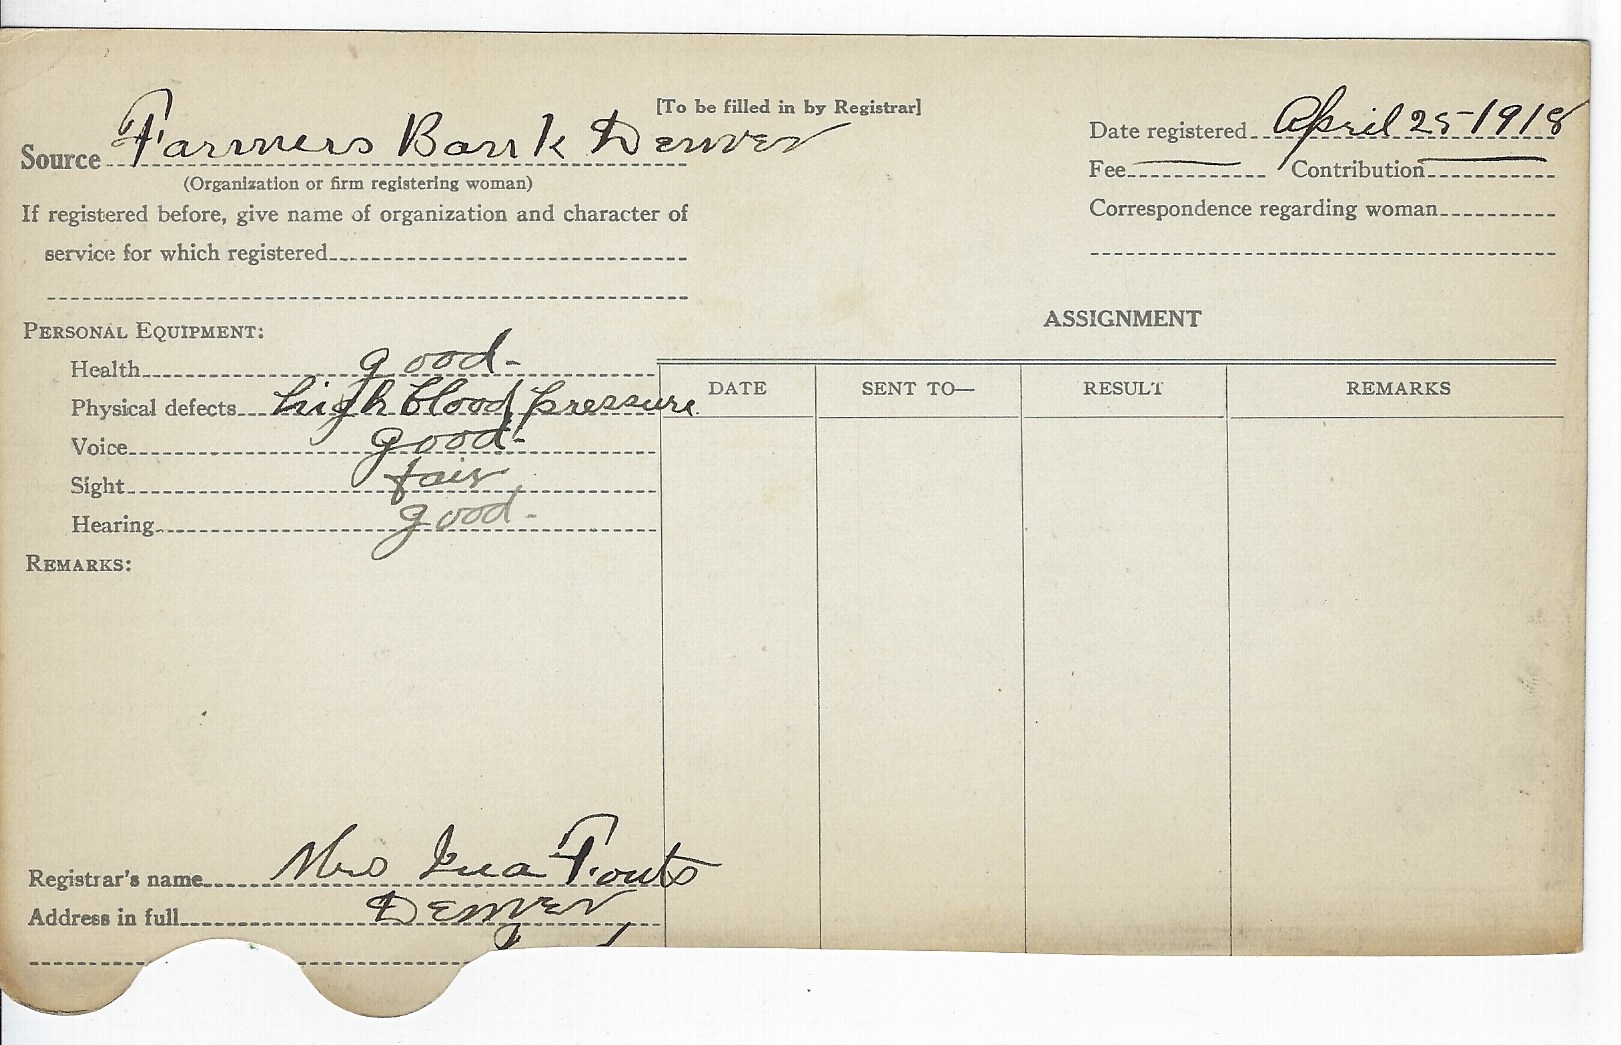 [To be filled in by Registrar]
Source Farmers Bank Denver
(Organization or firm registering woman)
If registered before, give name of organization and character of
service for which registered
Date registered April 25-1918
Fee Contribution
Correspondence regarding woman
PERSONAL EQUIPMENT:
Health good-
Physical defects high blood pressure
Voice good-
Sight fair
Hearing good-
REMARKS:
ASSIGNMENT
DATE SENT TO— RESULT REMARKS
Registrar's name Mrs Fouts
Address in full Denver